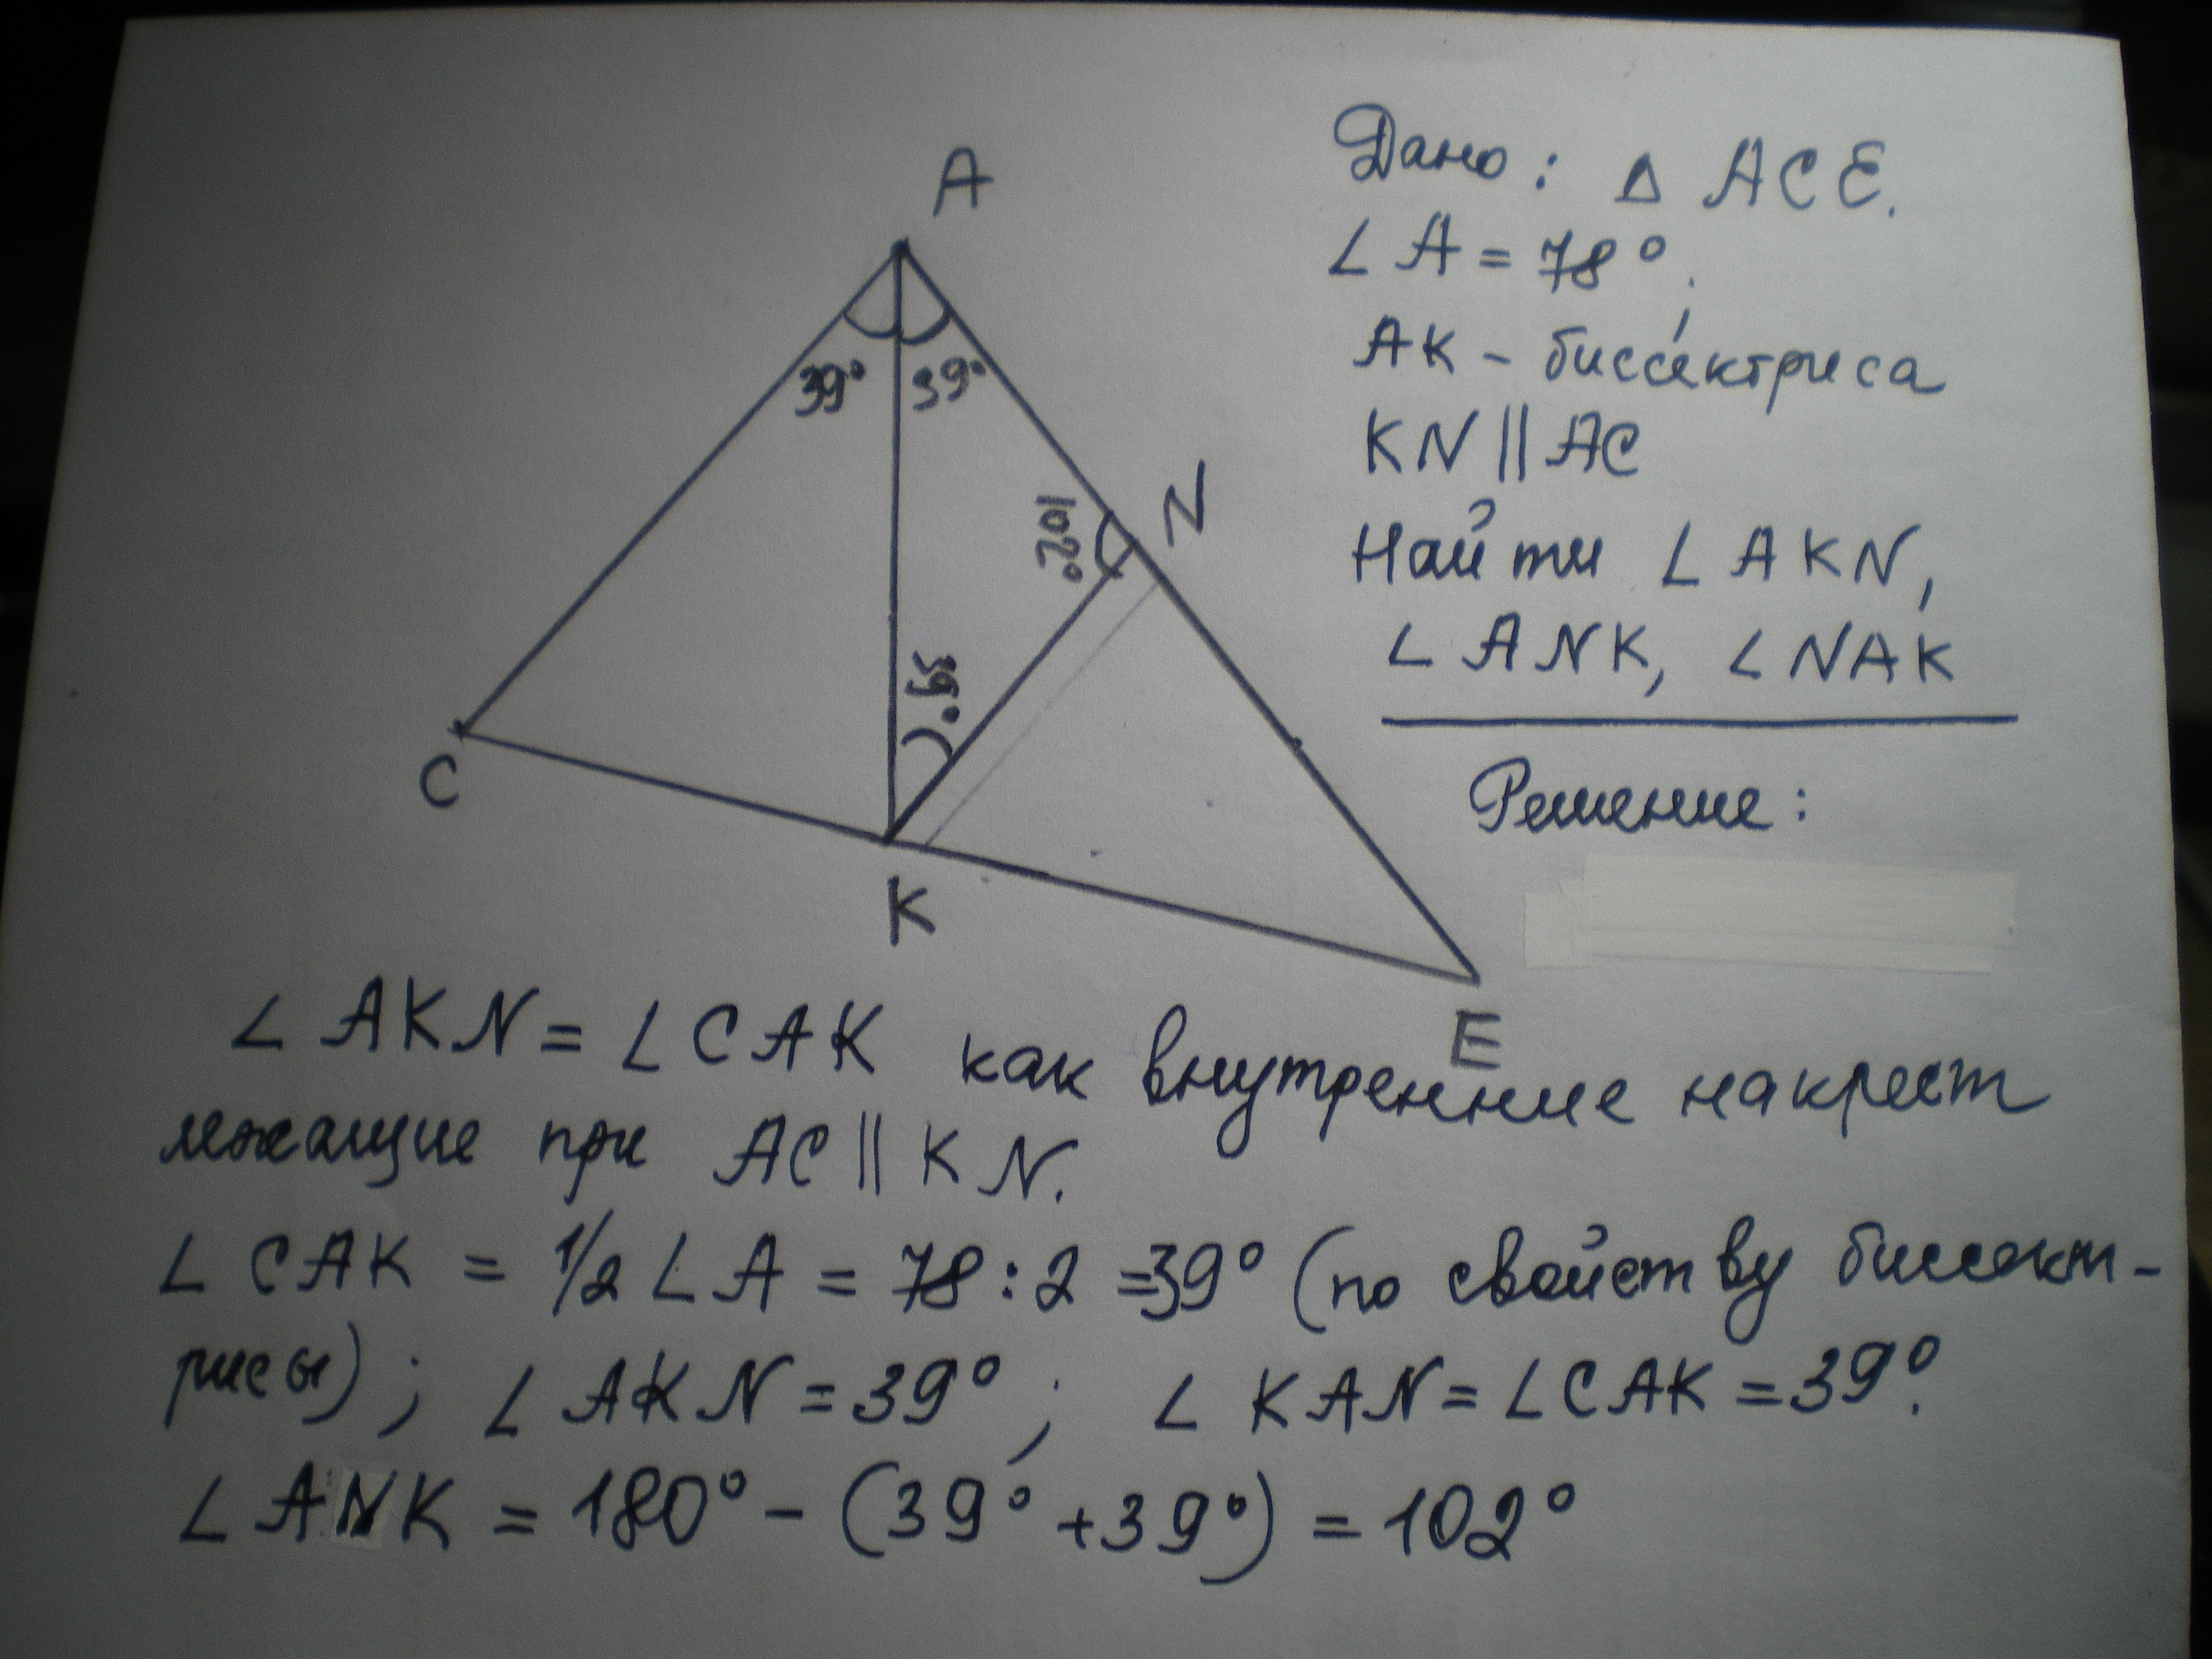 A
Дано: Δ ACE.
∠A = 78°;
39° 39°
AK - биссектриса
KN || AC
N
102°
Найти ∠AKN,
∠ANK, ∠NAK
39°
C
Решение:
K
E
∠AKN = ∠CAK как внутренние накрест
лежащие при AC || KN.
∠CAK = 1/2 ∠A = 78:2 = 39° (по свойству биссект-
рисы); ∠AKN = 39°; ∠KAN = ∠CAK = 39°.
∠ANK = 180° - (39° + 39°) = 102°